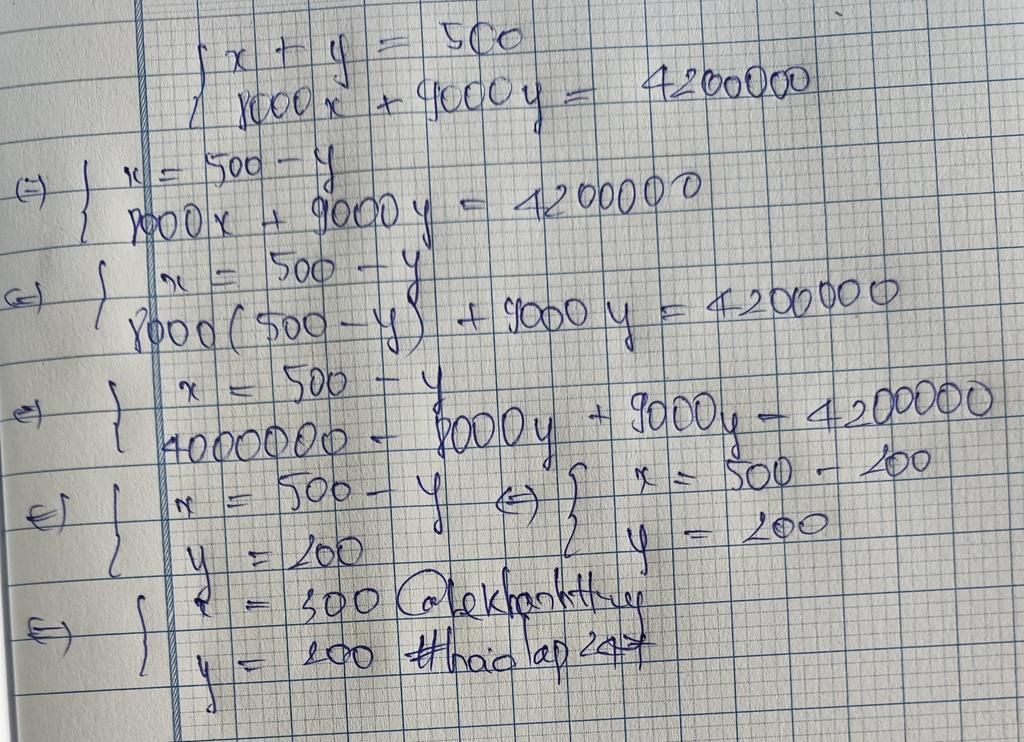 { x + y = 500
8000x + 9000y = 4200000
(=) { x = 500 - y
8000x + 9000y = 4200000
(=) { x = 500 - y
8000(500 - y) + 9000y = 4200000
(=) { x = 500 - y
4000000 - 8000y + 9000y = 4200000
(=) { x = 500 - y (=) { x = 500 - 200
y = 200 y = 200
(=) { x = 300 @alekhanhthuy
y = 200 #hoidap247